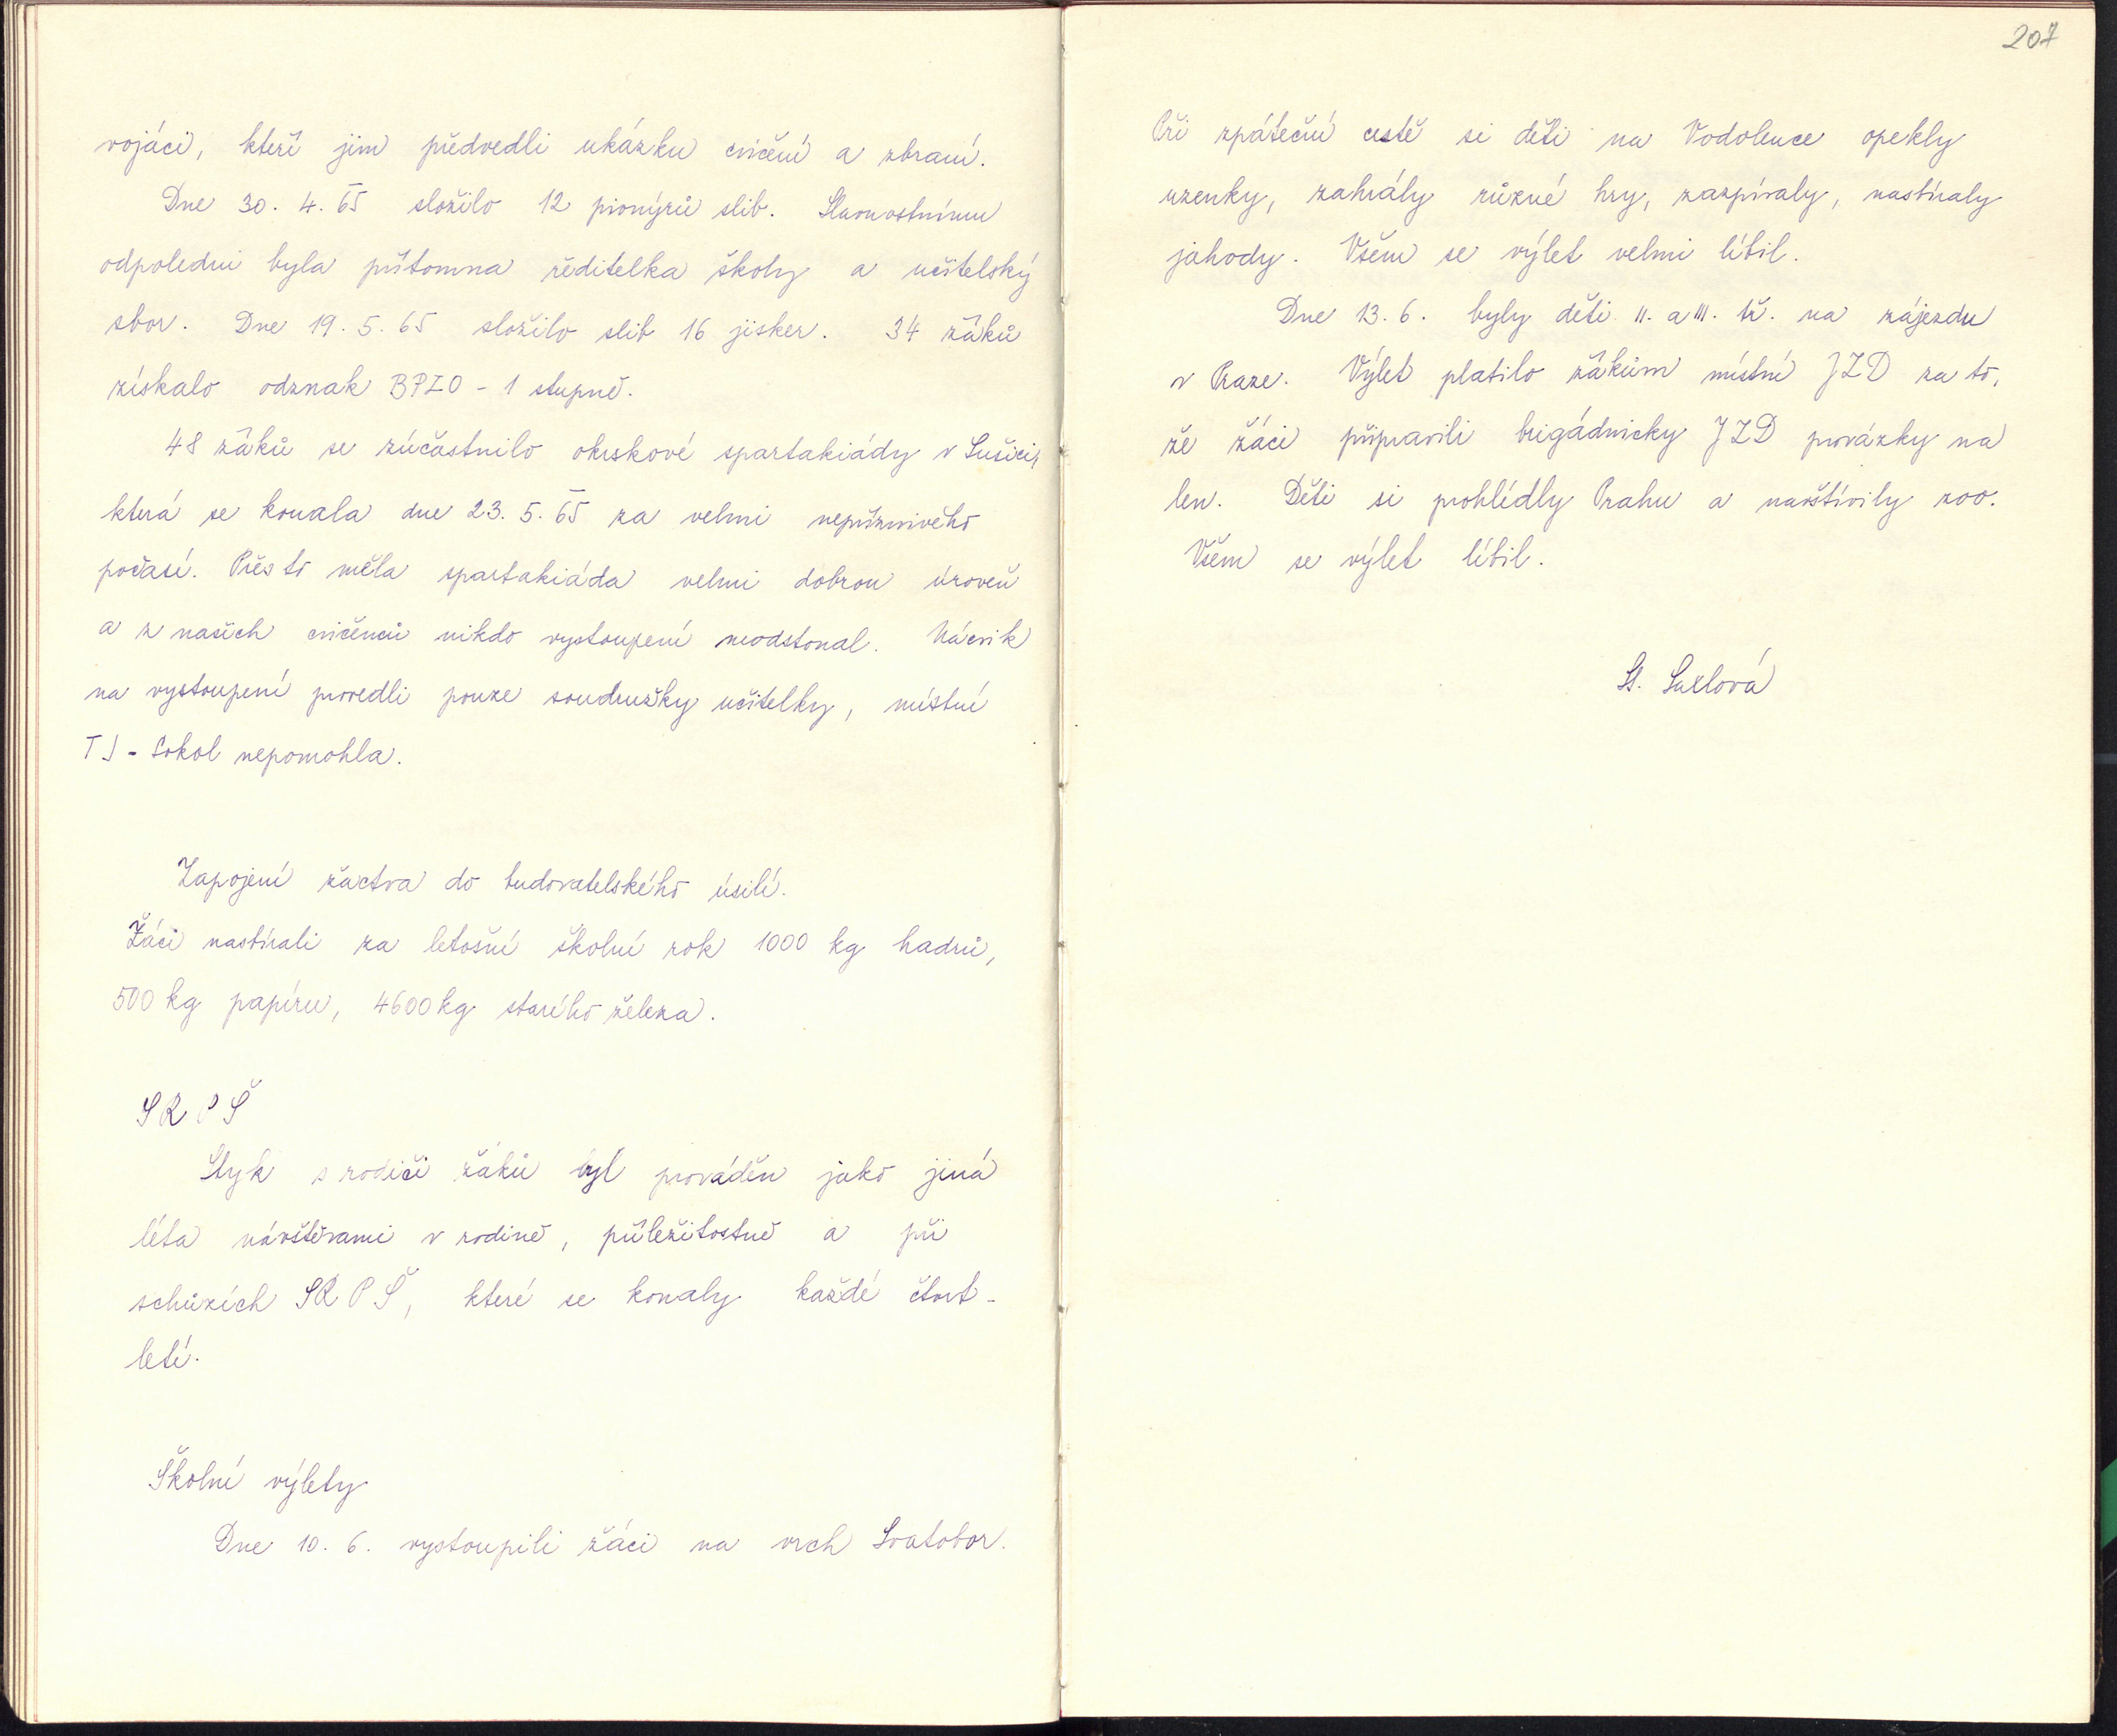 vojáci, kteří jim předvedli ukázku cvičení a zbraní.
Dne 30. 4. 65 složilo 12 pionýrů slib. Slavnostnímu
odpoledni byla přítomna ředitelka školy a učitelský
sbor. Dne 19. 5. 65 složilo slib 16 jisker. 34 žáků
získalo odznak BPZO - 1 stupně.
48 žáků se zúčastnilo okrskové spartakiády v Sušici,
která se konala dne 23. 5. 65 za velmi nepříznivého
počasí. Přes to měla spartakiáda velmi dobrou úroveň
a z našich cvičenců nikdo vystoupení neodstonal. Nácvik
na vystoupení provedli pouze soudružky učitelky, místní
TJ - Sokol nepomohla.
Zapojení žactva do budovatelského úsilí.
Žáci nasbírali za letošní školní rok 1000 kg hadrů,
500 kg papíru, 4600 kg starého železa.
SRPŠ
Styk s rodiči žáků byl prováděn jako jiná
léta návštěvami v rodině, příležitostně a při
schůzích SRPŠ, které se konaly každé čtvrt-
letí.
Školní výlety
Dne 10. 6. vystoupili žáci na vrch Svatobor.
207
Při zpáteční cestě si děti na Vodolence opekly
uzenky, zahrály různé hry, zazpívaly, nasbíraly
jahody. Všem se výlet velmi líbil.
Dne 13. 6. byly děti II. a III. tř. na zájezdu
v Praze. Výlet platilo žákům místní JZD za to,
že žáci připravili brigádnicky JZD provázky na
len. Děti si prohlédly Prahu a navštívily zoo.
Všem se výlet líbil.
St. Saxlová